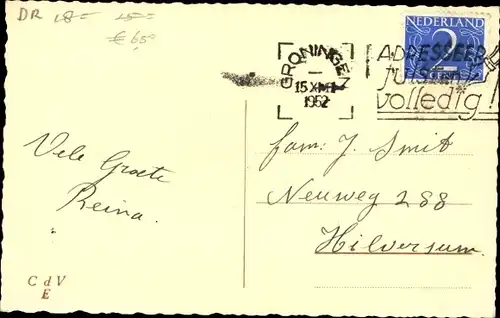 DR 18= 15=
€ 6,50
NEDERLAND
2
GRONINGEN
1952
ADRESSEER
juist en
volledig!
Fam: J. Smit
Neuweg 288
Hilversum.
Vele Groete
Reina.
C d V
E